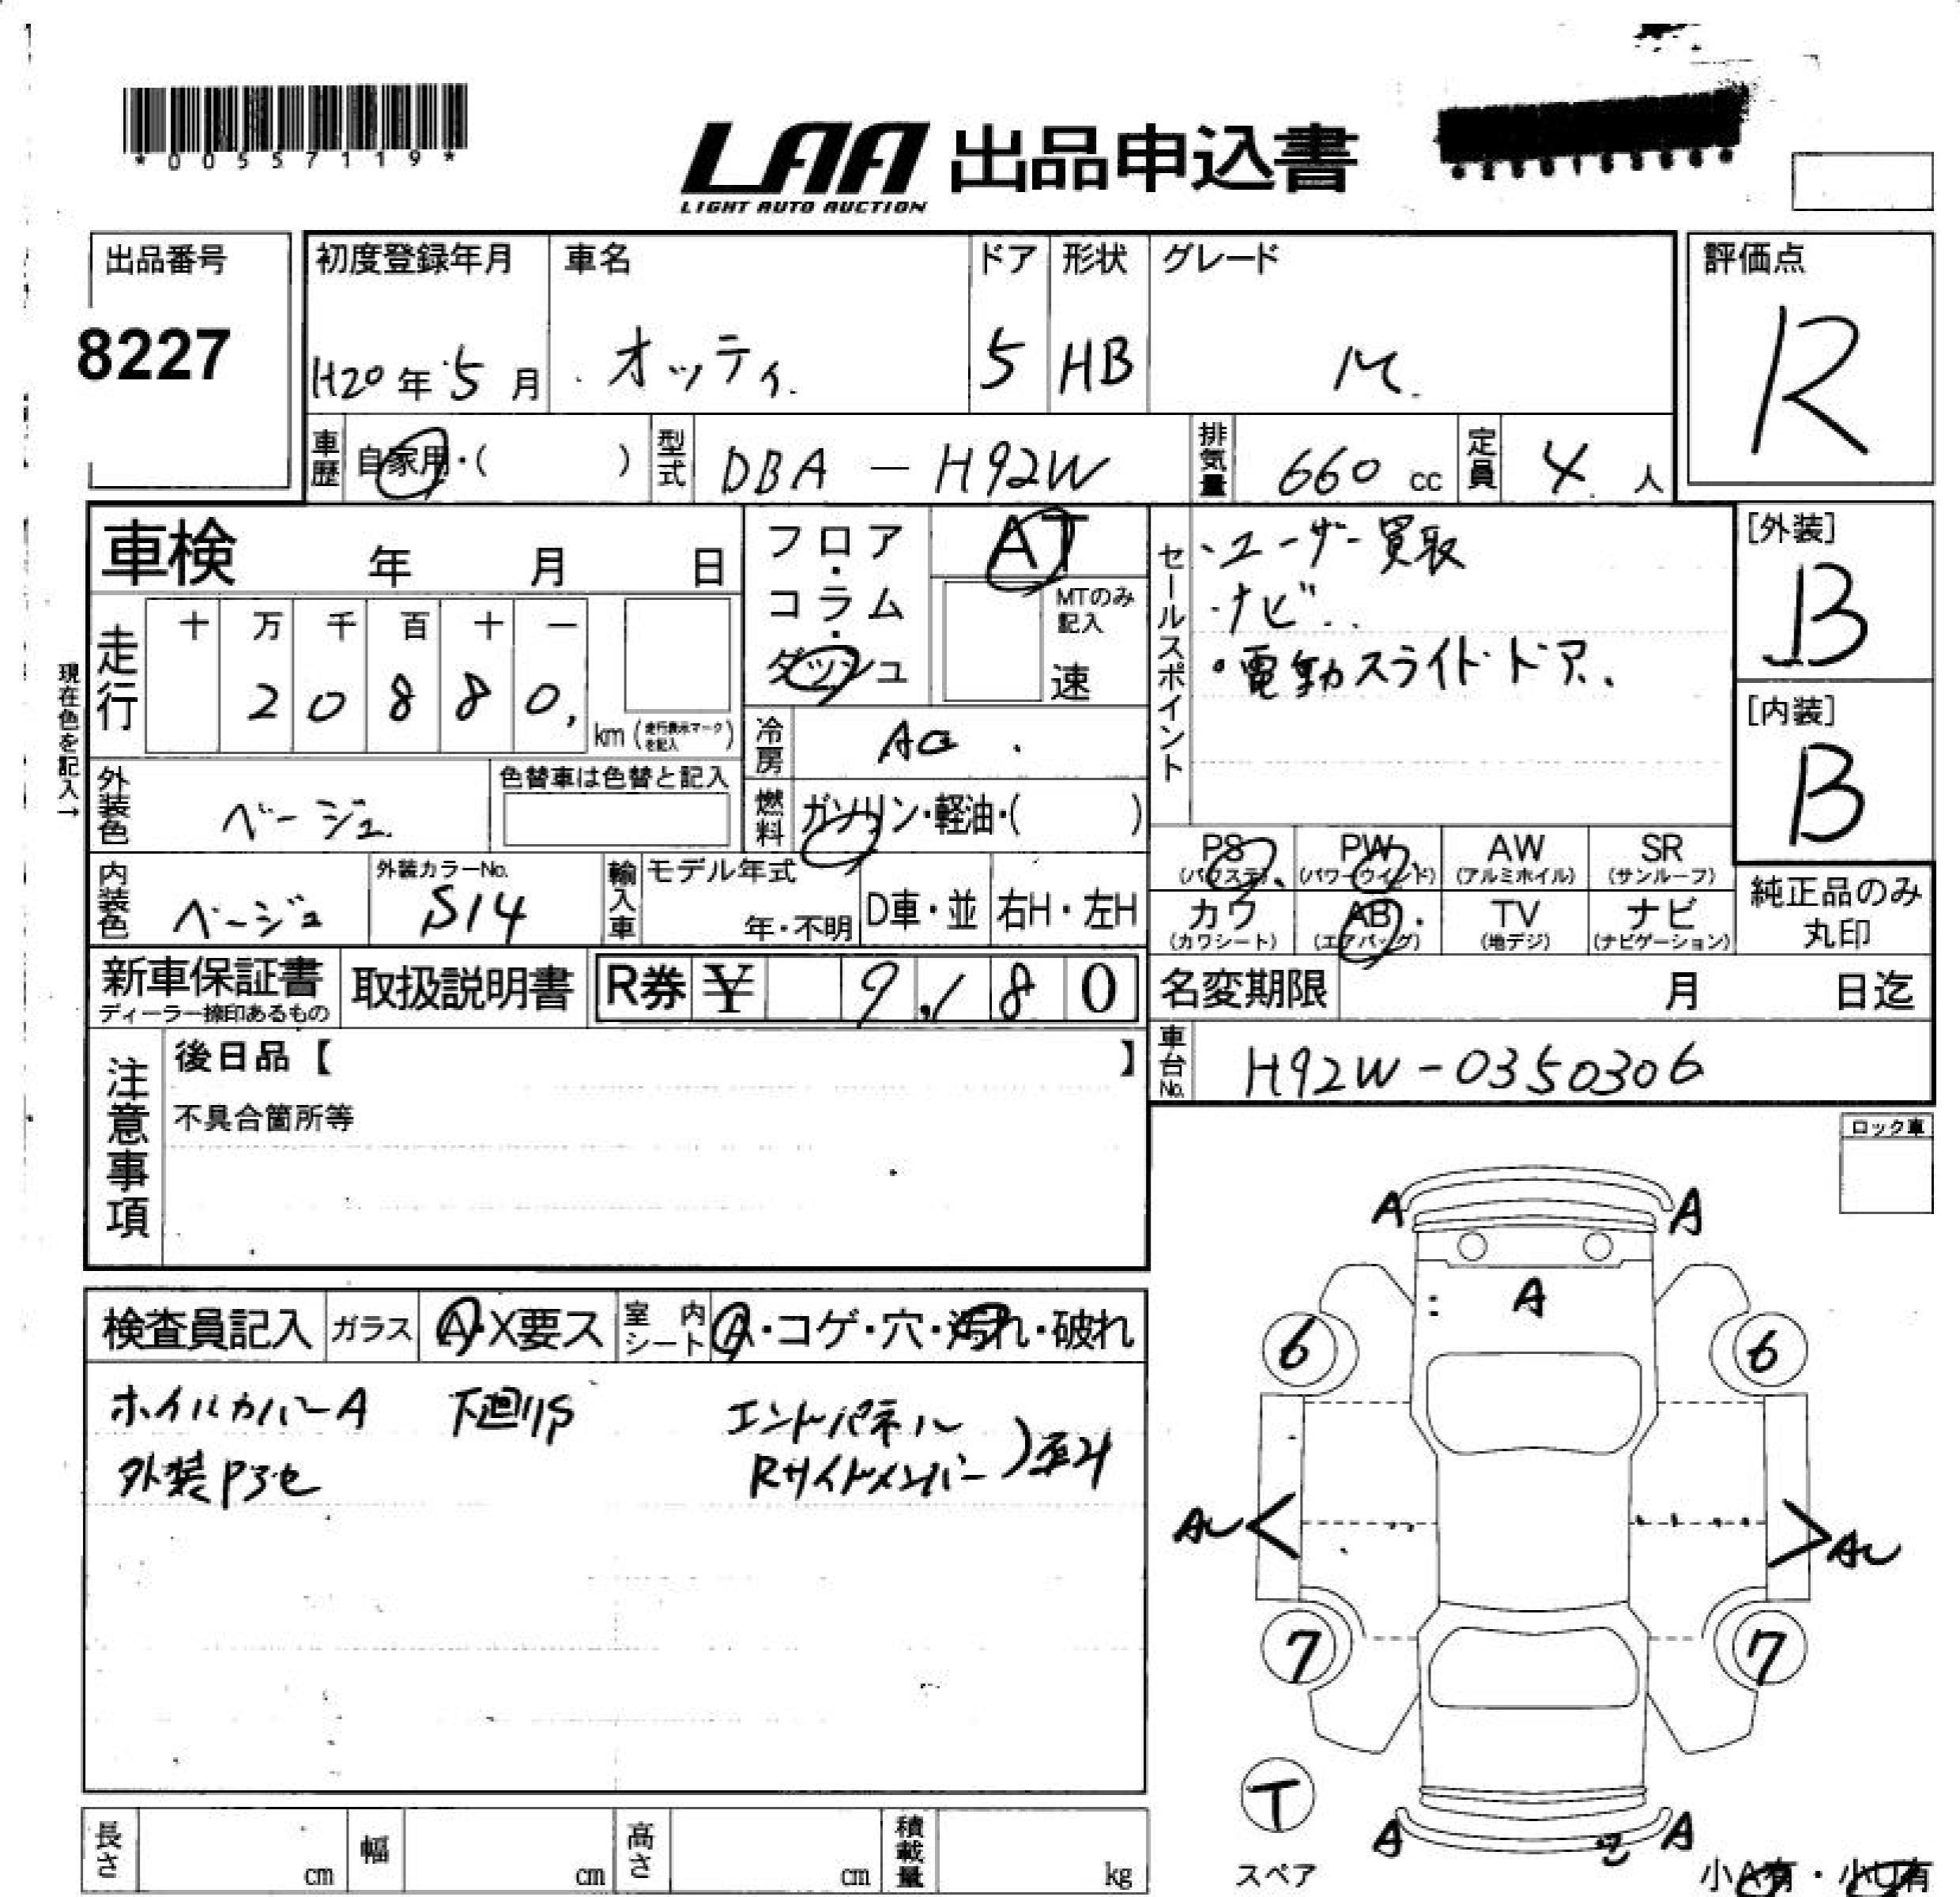 *00557119*
LAA 出品申込書
LIGHT AUTO AUCTION
出品番号
8227
初度登録年月
H20年5月
車名
オッティ
ドア
5
形状
HB
グレード
M
評価点
R
車歴
自家用・( )
型式
DBA-H92W
排気量
660cc
定員
4人
車検 年 月 日
現在色を記入→
走行
十 万 千 百 十 一
2 0 8 8 0
km(走行表示マークを記入)
フロア・コラム・ダッシュ
AT
MTのみ記入
速
冷房
AC
燃料
ガソリン・軽油・( )
セールスポイント
・ユーザー買取
・ナビ
・電動スライドドア
[外装]
B
[内装]
B
外装色
ベージュ
色替車は色替と記入
内装色
ベージュ
外装カラーNo.
S14
輸入車
モデル年式
年・不明
D車・並
右H・左H
PS
(パワステ)
PW
(パワーウインド)
AW
(アルミホイル)
SR
(サンルーフ)
カワ
(カワシート)
AB
(エアバッグ)
TV
(地デジ)
ナビ
(ナビゲーション)
純正品のみ
丸印
新車保証書
ディーラー捺印あるもの
取扱説明書
R券 ¥ 9,180
名変期限 月 日迄
車台No.
H92W-0350306
注意事項
後日品【 】
不具合箇所等
ロック車
検査員記入
ガラス
A・X要ス
室内シート
A・コゲ・穴・汚れ・破れ
ホイルカバーA 下廻りS エンドパネル
Rサイドメンバー
A A
A
6 6
7 7
T
スペア
A A
小A有・小U有
長さ cm
幅 cm
高さ cm
積載量 kg